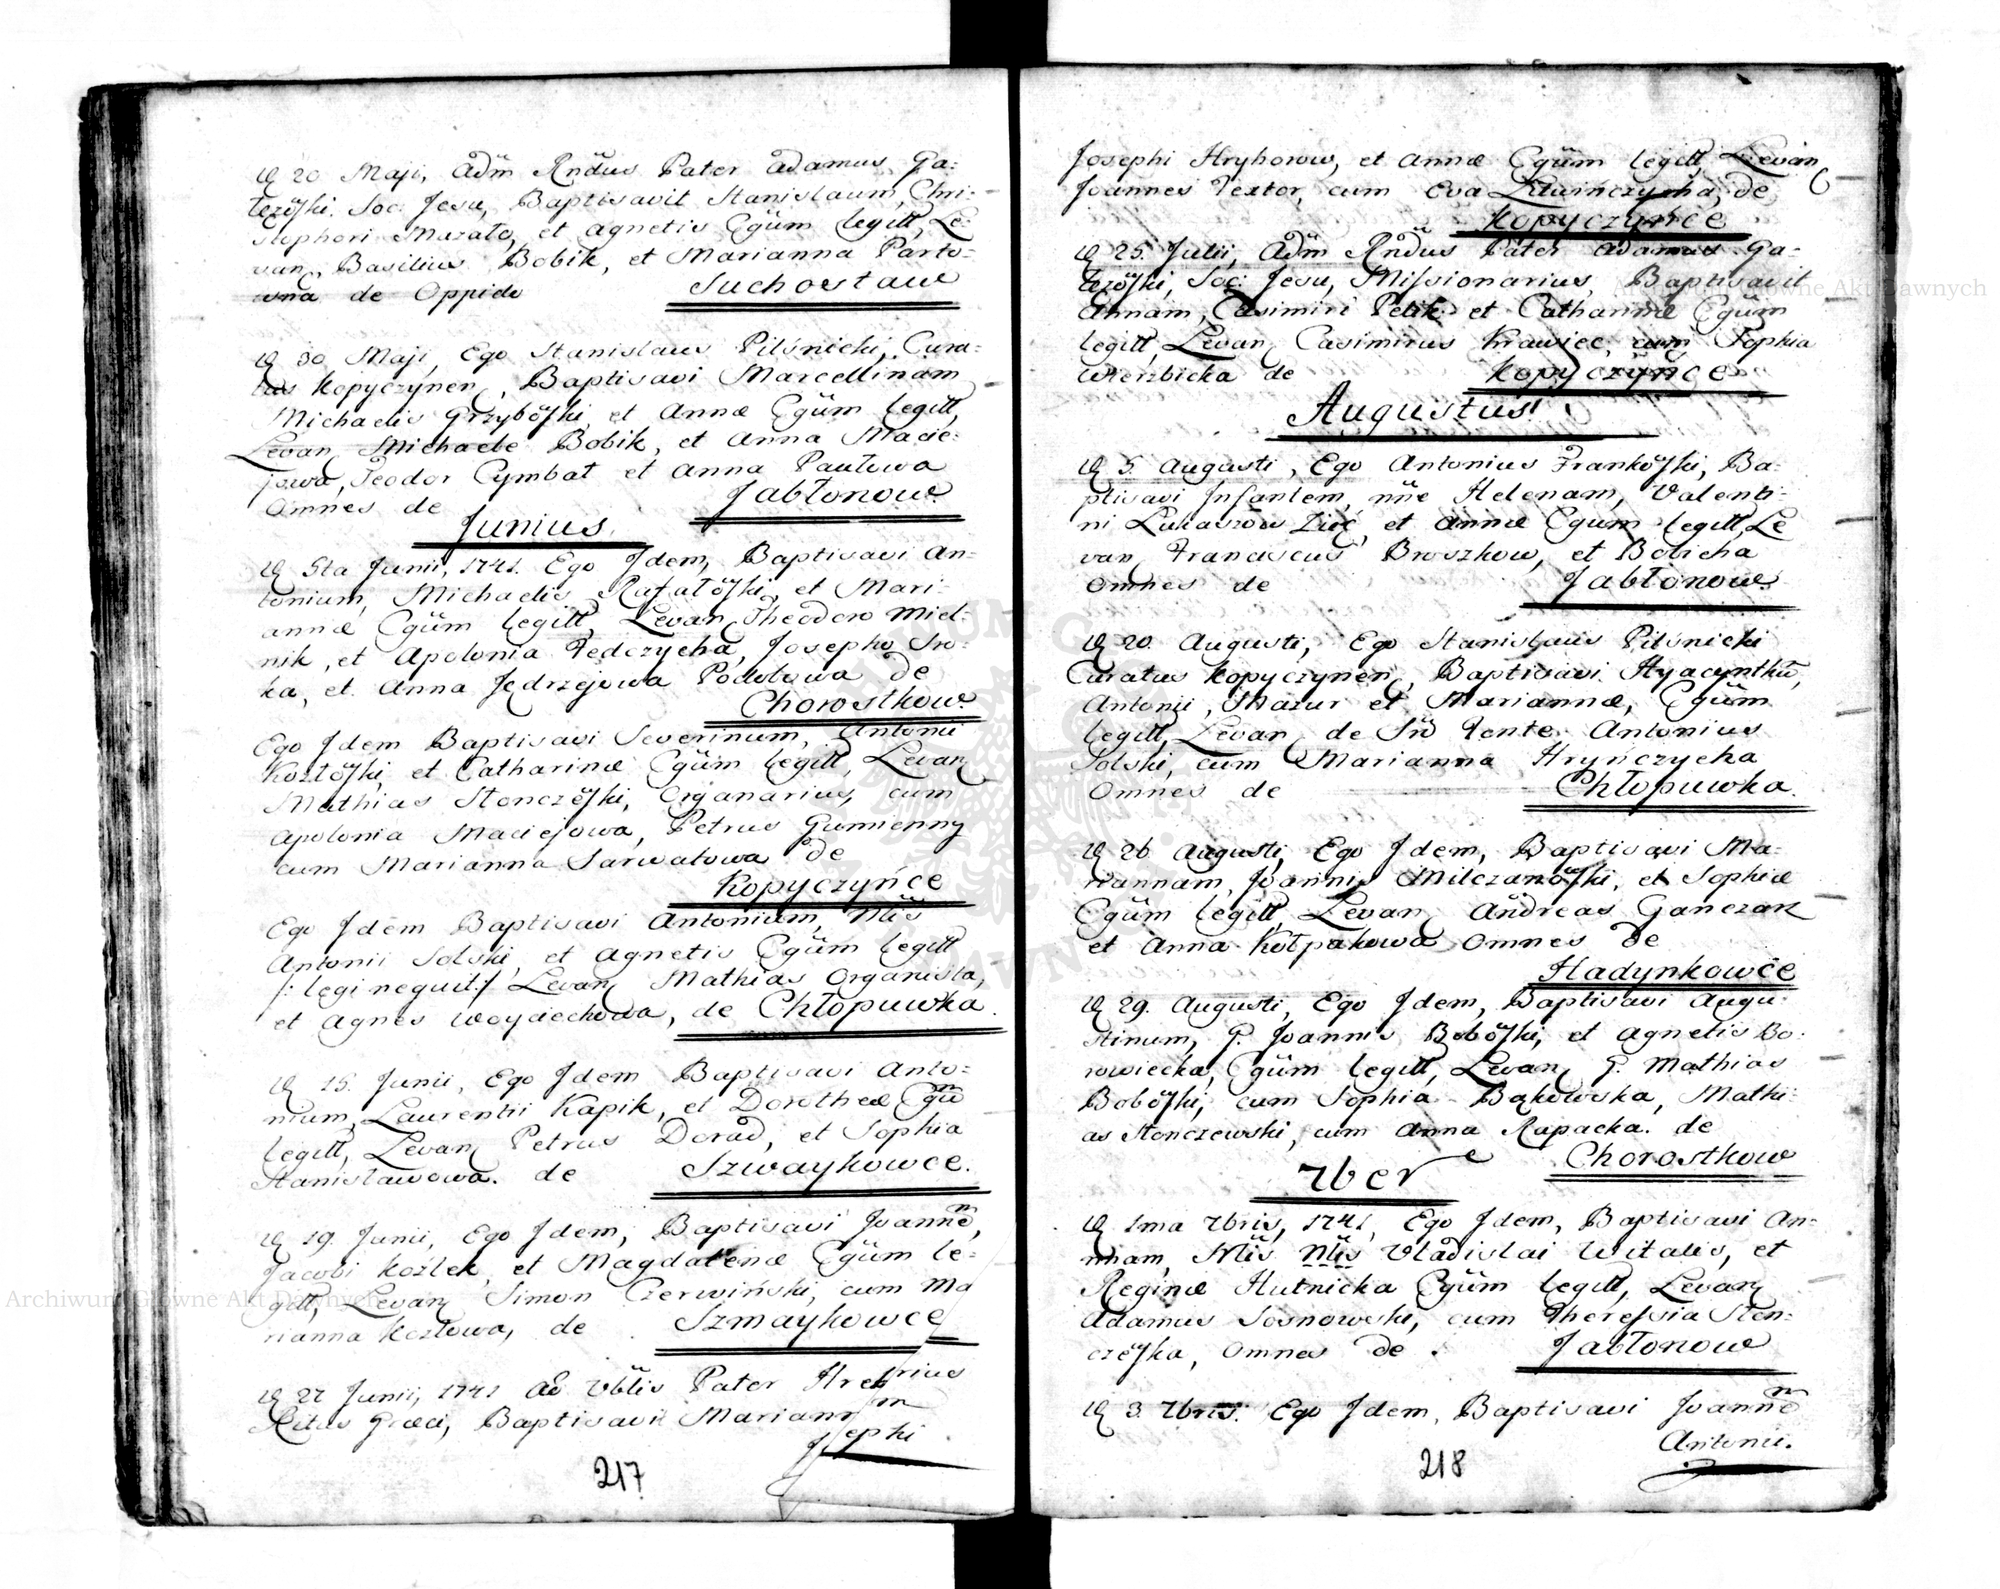 D 20 Maji, Adm̃ Rñdus Pater Adamus Ga:
Soc: Jesu, Baptisavit Stanislaum, Chri:
stophori et Agnetis Cgũm legitt, Le
van, Basilius Bobik, et Marianna Parto:
wna de Oppido Suchostaw
D 30 Maji, Ego Stanislaus Pilsnicki, Cura:
tus Kopyczynen, Baptisavi Marcellinam
Michaelis et Annæ Cgũm legitt,
Levan Michaele Bobik, et Anna Macie:
jowa, Teodor Cymbat et Anna Pawłowa
Omnes de Jabłonow.
Junius.
D 5ta Junii, 1741. Ego Jdem, Baptisavi An:
tonium, Michaelis et Mari:
annæ Cgũm legitt, Levan Theodoro Miel:
nik, et Apolonia Fedczycha, Josepho Sro:
ka, et Anna Jędrzejowa de
Chorostkow.
Ego Jdem Baptisavi Severinum, Antonii
et Catharinæ Cgũm legitt, Levan
Mathias Organarius, cum
Apolonia Maciejowa, Petrus Gumienny
cum Marianna Sarwatowa de
Kopyczyńce
Ego Jdem Baptisavi Antonium,
Antonii Solski, et Agnetis Cgũm legitt
/: legi nequit :/ Levan Mathias Organista,
et Agnes Woyciechowa, de Chłopuwka.
D 15. Junii, Ego Jdem Baptisavi Anto:
nium, Laurentii Kapik, et Dorotheæ Cgũ
legitt, Levan Petrus Dorad, et Sophia
Stanisławowa. de Szwaykowce.
D 19. Junii, Ego Jdem, Baptisavi Joannẽ,
Jacobi Kozlek, et Magdalenæ Cgũm le:
gitt, Levan Simon Czerwiński, cum Ma
rianna Kozłowa, de Szmaykowce
D 27 Junii, 1741 Ad Pater
Ritus Græci, Baptisavit
ephi
217
Josephi Hryhorow, et Annæ Cgũm legitt, Levan
Joannes Textor, cum Eva de
Kopyczyńce
D 25. Julii, Adm̃ Rñdus Pater Adamus Ga:
Soc: Jesu, Missionarius, Baptisavit
Annam, Casimiri Petik et Catharinæ Cgũm
legitt, Levan Casimirus Krawiec, cum Sophia
Wierzbicka de Kopyczyńce
Augustus.
D 5. Augusti, Ego Antonius Frankõski, Ba:
ptisavi Jnfantem, nñe Helenam, Valenti:
ni et Annæ Cgũm legitt, Le
van Franciscus Broszkow, et Bobicha
Omnes de Jabłonow.
D 20. Augusti, Ego Stanislaus Pilsnicki
Curatus Kopyczynen, Baptisavi Hyacynthũ,
Antonii, Mazur et Mariannæ, Cgũm
legitt, Levan de Fonte Antonius
Solski, cum Marianna Hryńczycha
Omnes de Chłopuwka.
D 26 Augusti, Ego Jdem, Baptisavi Ma:
riannam, Joannis et Sophiæ
Cgũm legitt, Levan Andreas Ganczarz
et Anna Kołpakowa Omnes de
Hadynkowce
D 29. Augusti, Ego Jdem, Baptisavi Augu:
stinum, G. Joannis Bobõski, et Agnetis Bo:
rowiecka, Cgũm legitt, Levan G. Mathias
Bobõski, cum Sophia Bąkowska, Mathi:
as Stonczewski, cum Anna Rapacka. de
Chorostkow
7ber
D 1ma 7bris, 1741, Ego Jdem, Baptisavi An:
nam, Vladislai Witalis, et
Reginæ Hutnicka Cgũm legitt, Levan
Adamus Sosnowski, cum Theressia Ston:
Omnes de Jabłonow
D 3. 7bris. Ego Jdem, Baptisavi Joannẽ
Antonii.
218
Archiwum Główne Akt Dawnych
Archiwum Główne Akt Dawnych